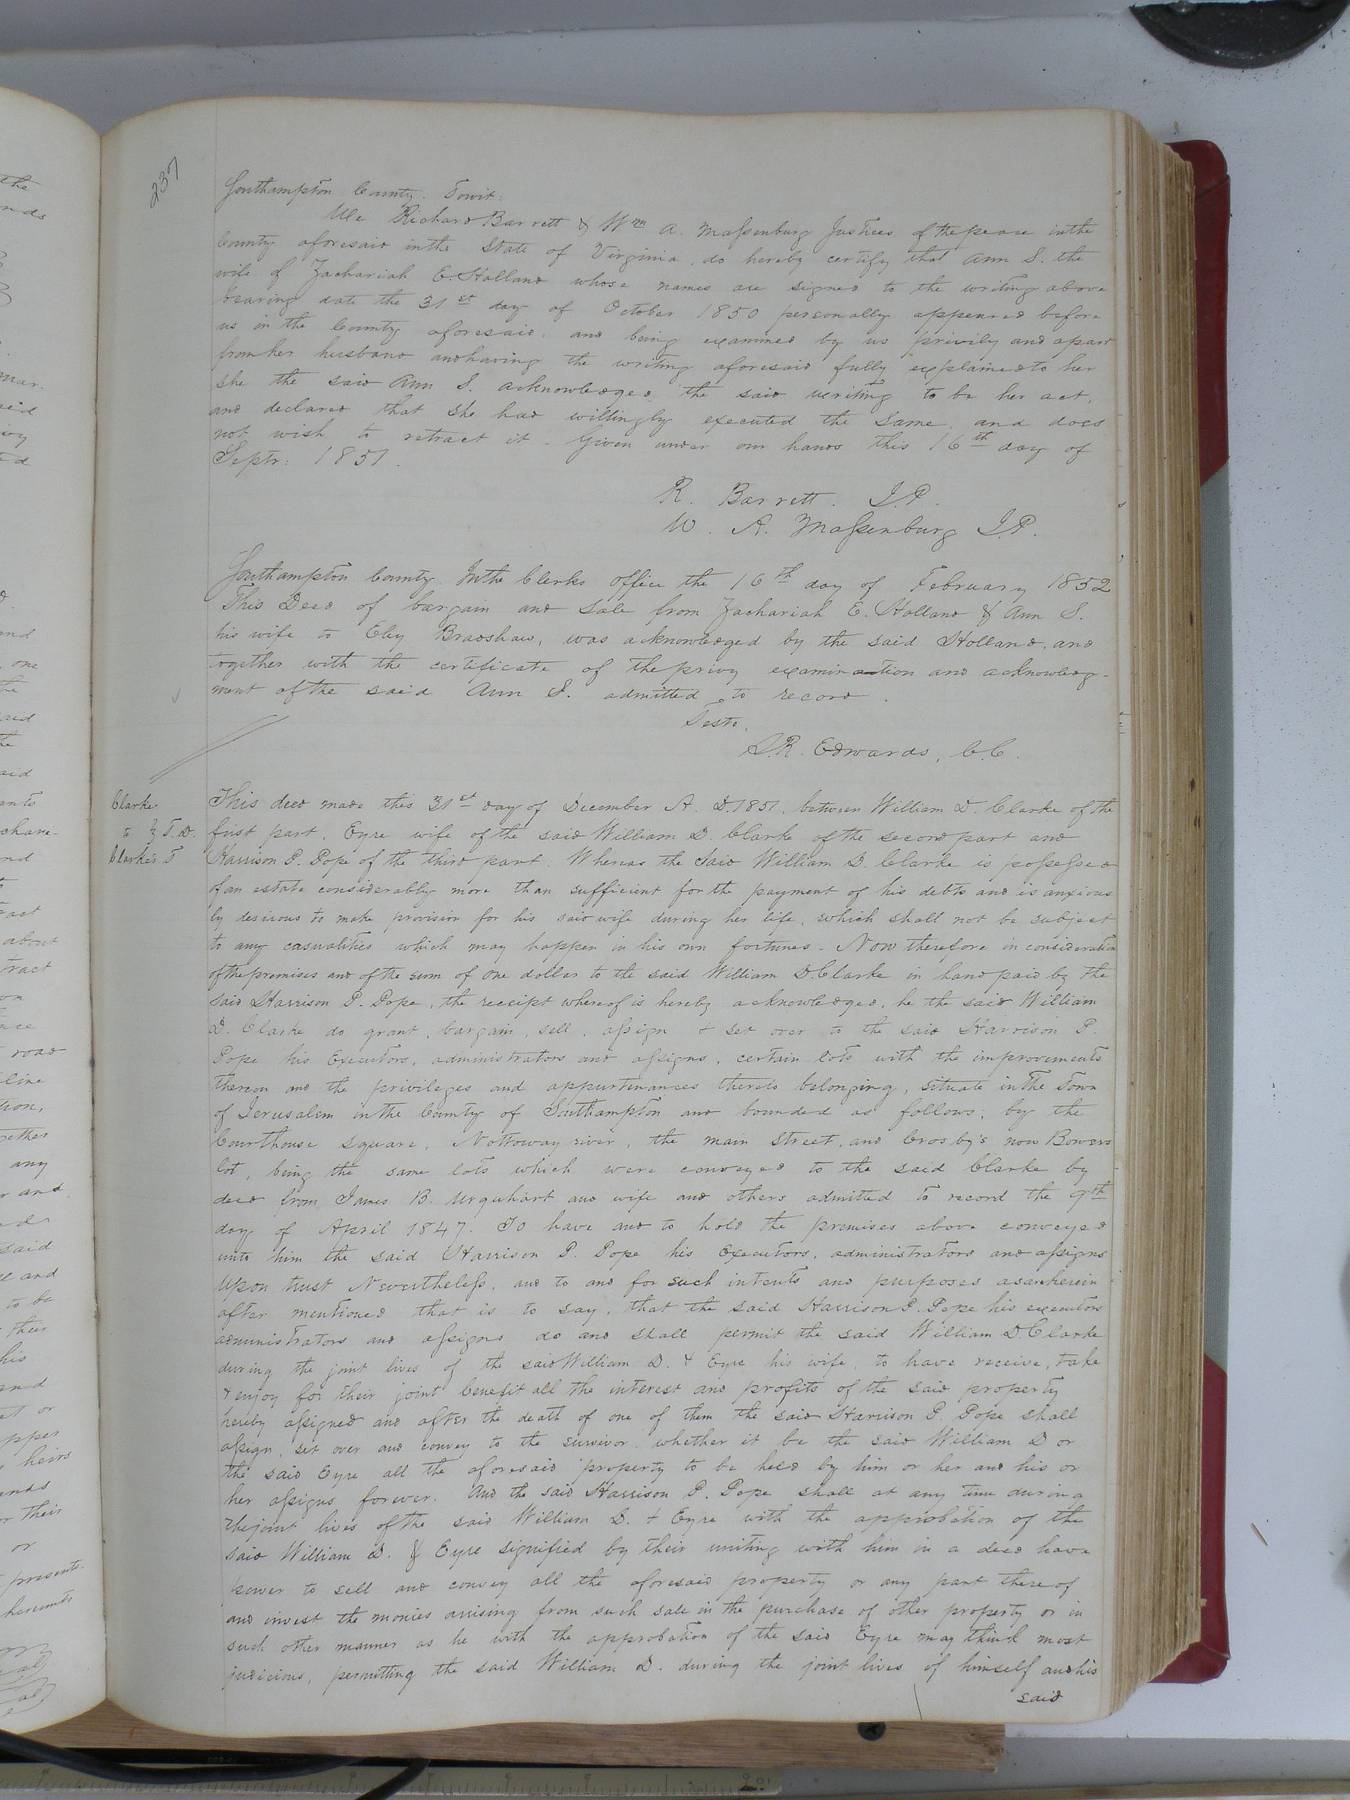 237
Southampton County. Towit:
We Richard Barrett & Wm A. Massenburg Justices of the peace in the
County aforesaid in the State of Virginia, do hereby certify that Ann S. the
wife of Zachariah E. Holland whose names are signed to the writing above
bearing date the 31st day of October 1850 personally appeared before
us in the County aforesaid, and being examined by us privily and apart
from her husband and having the writing aforesaid fully explained to her
she the said Ann S. acknowledged the said writing to be her act,
and declared that she had willingly executed the same, and does
not wish to retract it. Given under our hands this 16th day of
Septr: 1851.
R. Barrett. J.P.
W. A. Massenburg J.P.
Southampton County. In the Clerks office the 16th day of February 1852
This Deed of bargain and sale from Zachariah E. Holland & Ann S.
his wife to Eley Bradshaw, was acknowledged by the said Holland, and
together with the certificate of the privy examination and acknowledg-
ment of the said Ann S. admitted to record.
Teste,
L.R. Edwards, C.C.
Clarke
to } T.D.
Clarke's T
This deed made this 31st day of December A. D. 1851, between William D. Clarke of the
first part, Eyre wife of the said William D. Clarke of the second part and
Harrison P. Pope of the third part. Whereas the said William D. Clarke is possessed
of an estate considerably more than sufficient for the payment of his debts and is anxious
ly desirous to make provision for his said wife during her life, which shall not be subject
to any casualities which may happen in his own fortunes. Now therefore in consideration
of the premises and of the sum of one dollar to the said William D Clarke in hand paid by the
said Harrison P. Pope, the receipt whereof is hereby acknowledged, he the said William
D. Clarke do grant, bargain, sell, assign & set over to the said Harrison P.
Pope his Executors, administrators and assigns, certain lots with the improvements
thereon and the privileges and appurtenances thereto belonging, situate in the Town
of Jerusalem in the County of Southampton and bounded as follows, by the
Courthouse square, Nottoway river, the main street, and Crosby's now Bowers
lot, being the same lots which were conveyed to the said Clarke by
deed from James B. Urquhart and wife and others admitted to record the 9th
day of April 1847. To have and to hold the premises above conveyed
unto him the said Harrison P. Pope his Executors, administrators and assigns
Upon trust Nevertheless, and to and for such intents and purposes as are herein
after mentioned that is to say, that the said Harrison P. Pope his executors
administrators and assigns do and shall permit the said William D Clarke
during the joint lives of the said William D. & Eyre his wife, to have receive, take
& enjoy for their joint benefit all the interest and profits of the said property
hereby assigned and after the death of one of them the said Harrison P. Pope shall
assign, set over and convey to the survivor whether it be the said William D or
the said Eyre all the aforesaid property to be held by him or her and his or
her assigns forever. And the said Harrison P. Pope shall at any time during
the joint lives of the said William D. & Eyre with the approbation of the
said William D. & Eyre signified by their uniting with him in a deed have
power to sell and convey all the aforesaid property or any part thereof
and invest the monies arising from such sale in the purchase of other property or in
such other manner as he with the approbation of the said Eyre may think most
judicious, permitting the said William D. during the joint lives of himself and his
said